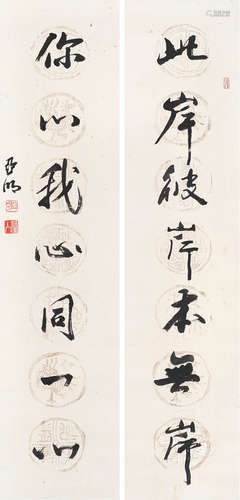 此岸彼岸本無岸
你心我心同一心
亞明